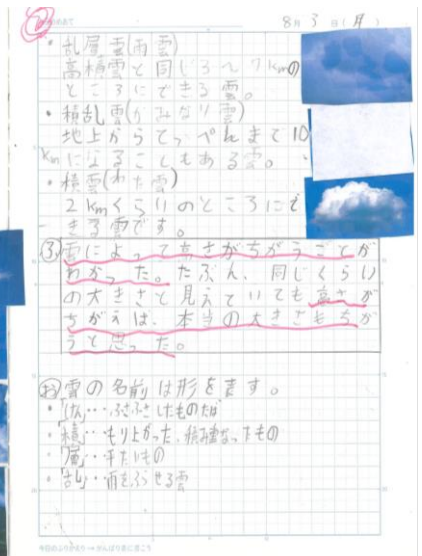 8月3日(月)
・乱層雲(雨雲)
高積雲と同じ3～7kmの
ところにできる雲。
・積乱雲(かみなり雲)
地上からてっぺんまで10
kmになることもある雲。
・積雲(わた雲)
2kmくらいのところにで
きる雲です。
(ふ)雲によって高さがちがうことが
わかった。たぶん、同じくらい
の大きさと見えていても高さが
ちがえば、本当の大きさもちが
うと思った。
(お)雲の名前は形を表す。
・「積」…もり上がった、積み重なったもの
・「層」…平たいもの
・「乱」…雨をふらせる雲
今日のふりかえり→がんばり表に書こう